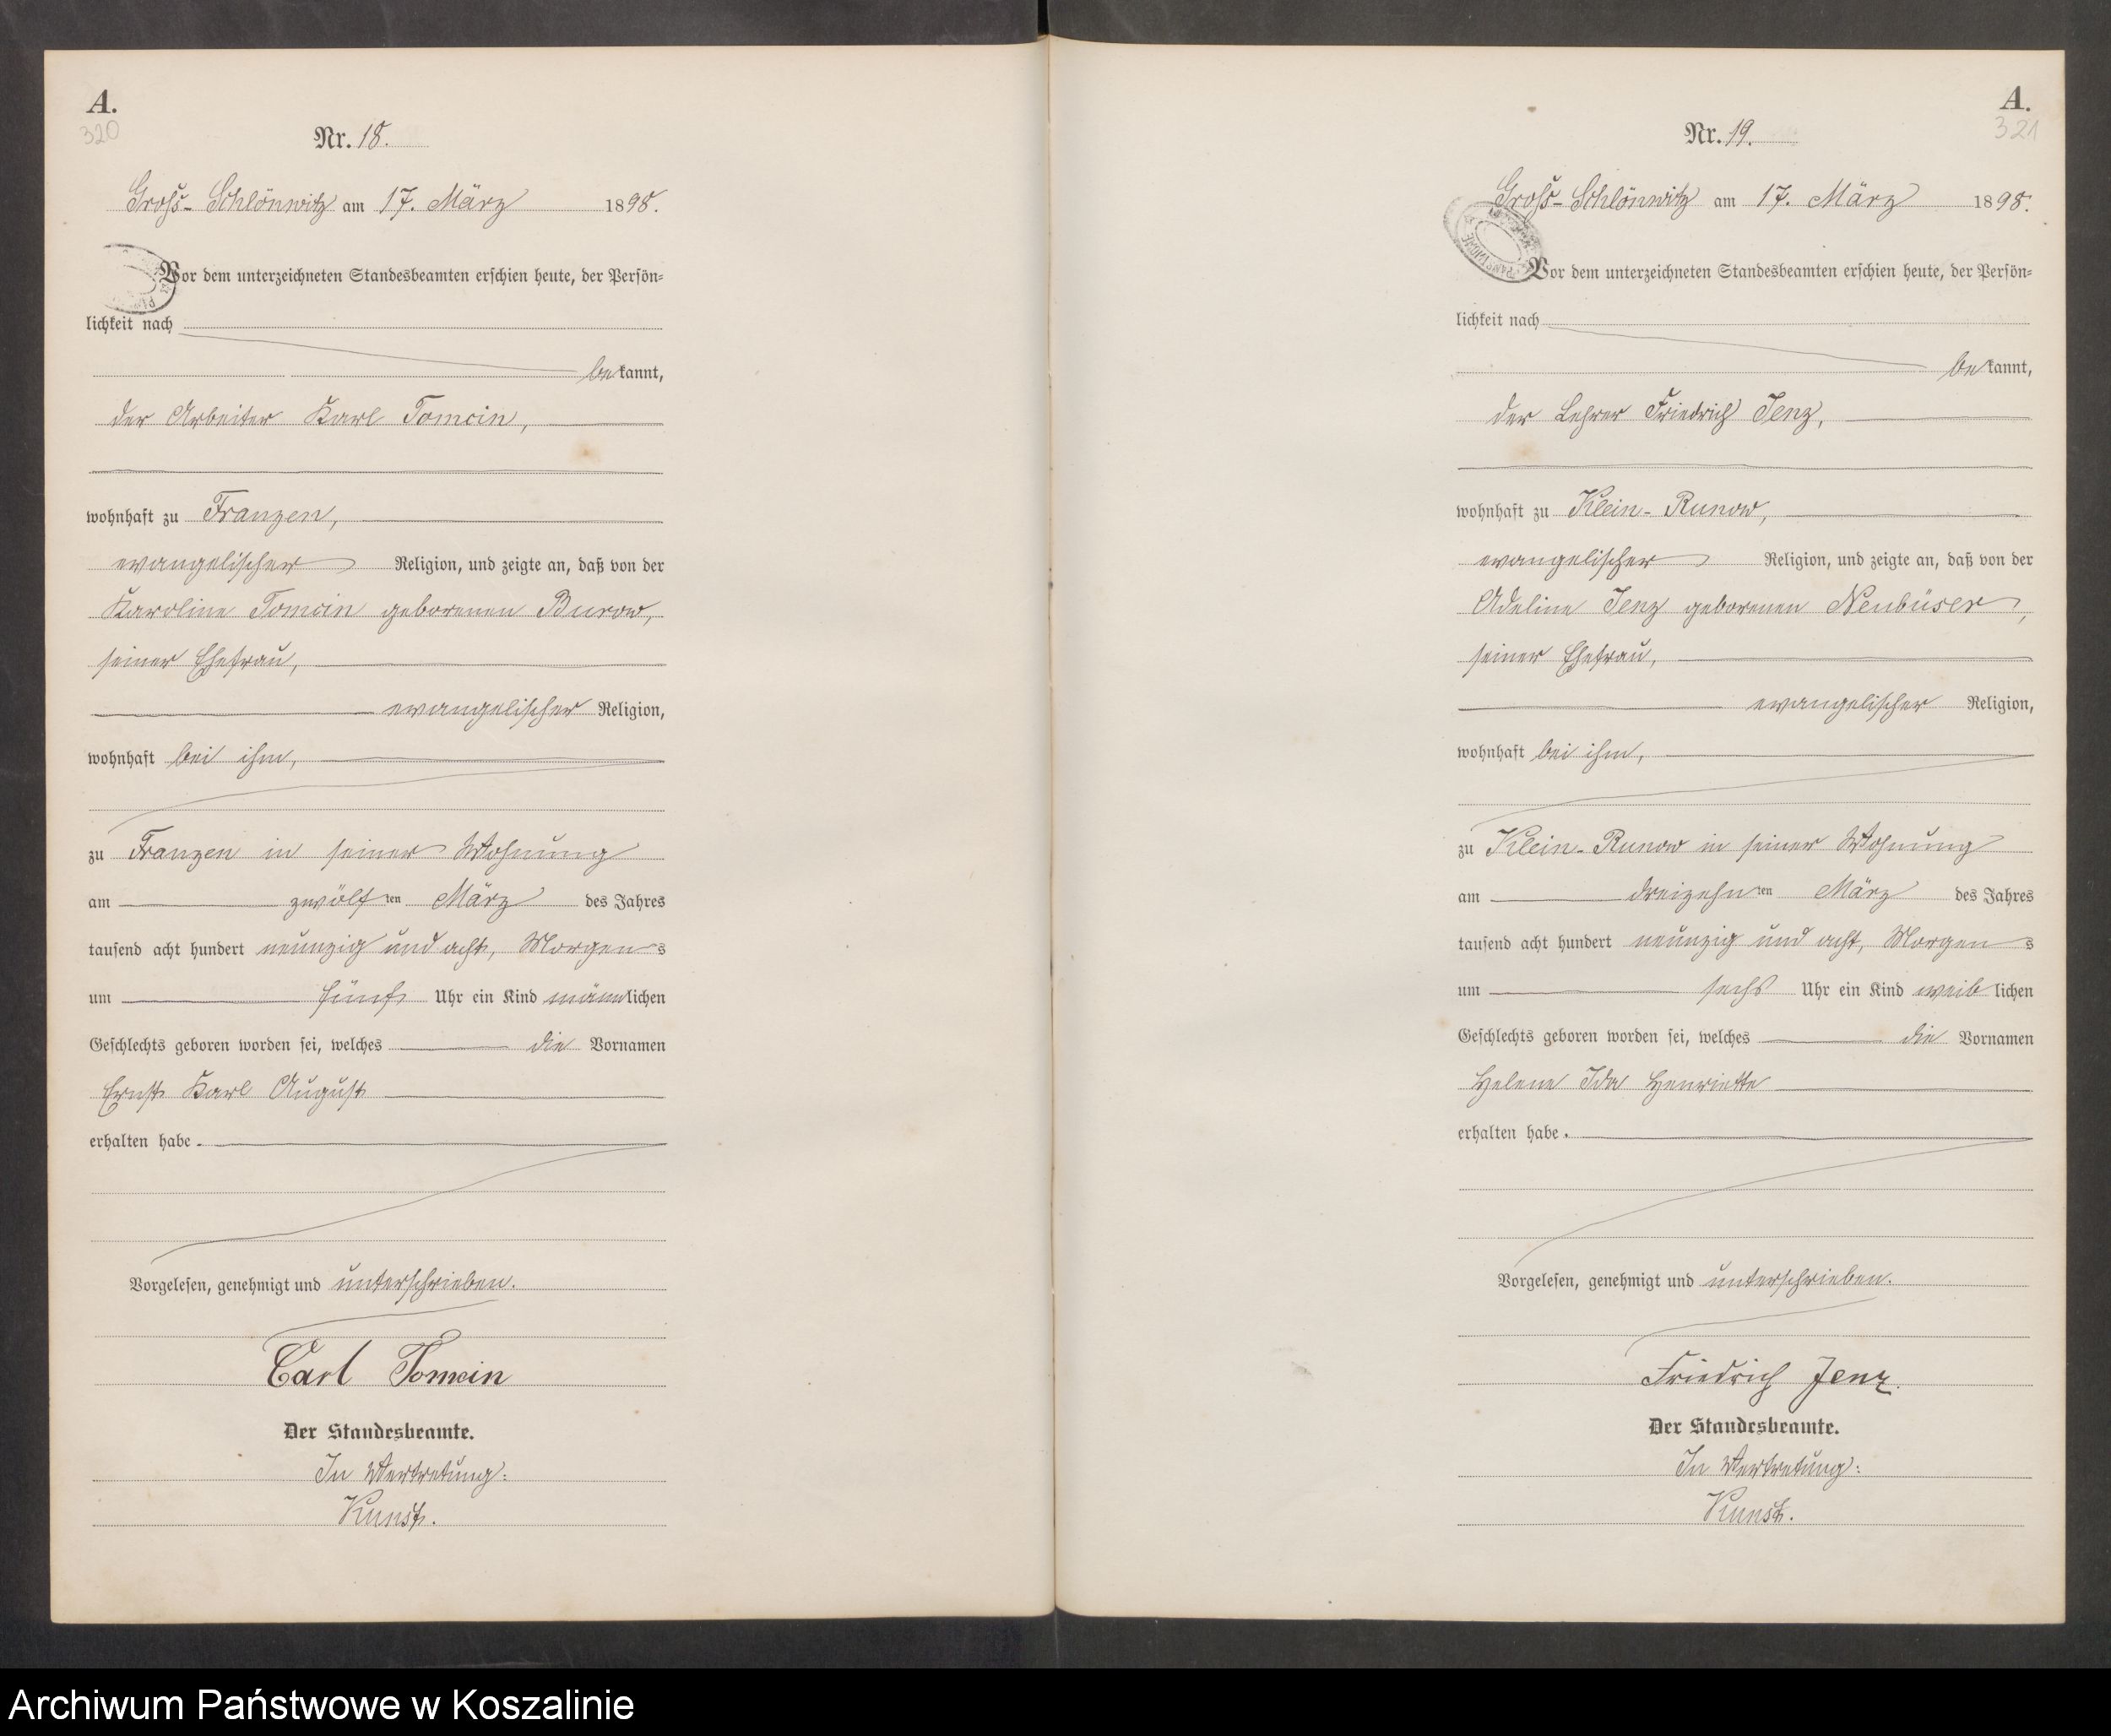 A.
320
Nr. 18.
Gross-Schlönwitz am 17. März 1898.
Vor dem unterzeichneten Standesbeamten erschien heute, der Persön-
lichkeit nach
bekannt,
der Arbeiter Karl Tomcin,
wohnhaft zu Franzen,
evangelischer Religion, und zeigte an, daß von der
Karoline Tomcin geborenen Burow,
seiner Ehefrau,
evangelischer Religion,
wohnhaft bei ihm,
zu Franzen in seiner Wohnung
am zwölften März des Jahres
tausend acht hundert neunzig und acht, Morgens
um fünf Uhr ein Kind männlichen
Geschlechts geboren worden sei, welches die Vornamen
Ernst Karl August
erhalten habe.
Vorgelesen, genehmigt und unterschrieben.
Carl Tomcin
Der Standesbeamte.
In Vertretung:
Kunst.
A.
321
Nr. 19.
Gross-Schlönwitz am 17. März 1898.
Vor dem unterzeichneten Standesbeamten erschien heute, der Persön-
lichkeit nach
bekannt,
der Lehrer Friedrich Jenz,
wohnhaft zu Klein-Runow,
evangelischer Religion, und zeigte an, daß von der
Adeline Jenz geborenen Neubüser,
seiner Ehefrau,
evangelischer Religion,
wohnhaft bei ihm,
zu Klein-Runow in seiner Wohnung
am dreizehnten März des Jahres
tausend acht hundert neunzig und acht, Morgens
um sechs Uhr ein Kind weiblichen
Geschlechts geboren worden sei, welches die Vornamen
Helene Ida Henriette
erhalten habe.
Vorgelesen, genehmigt und unterschrieben.
Friedrich Jenz.
Der Standesbeamte.
In Vertretung:
Kunst.
Archiwum Państwowe w Koszalinie